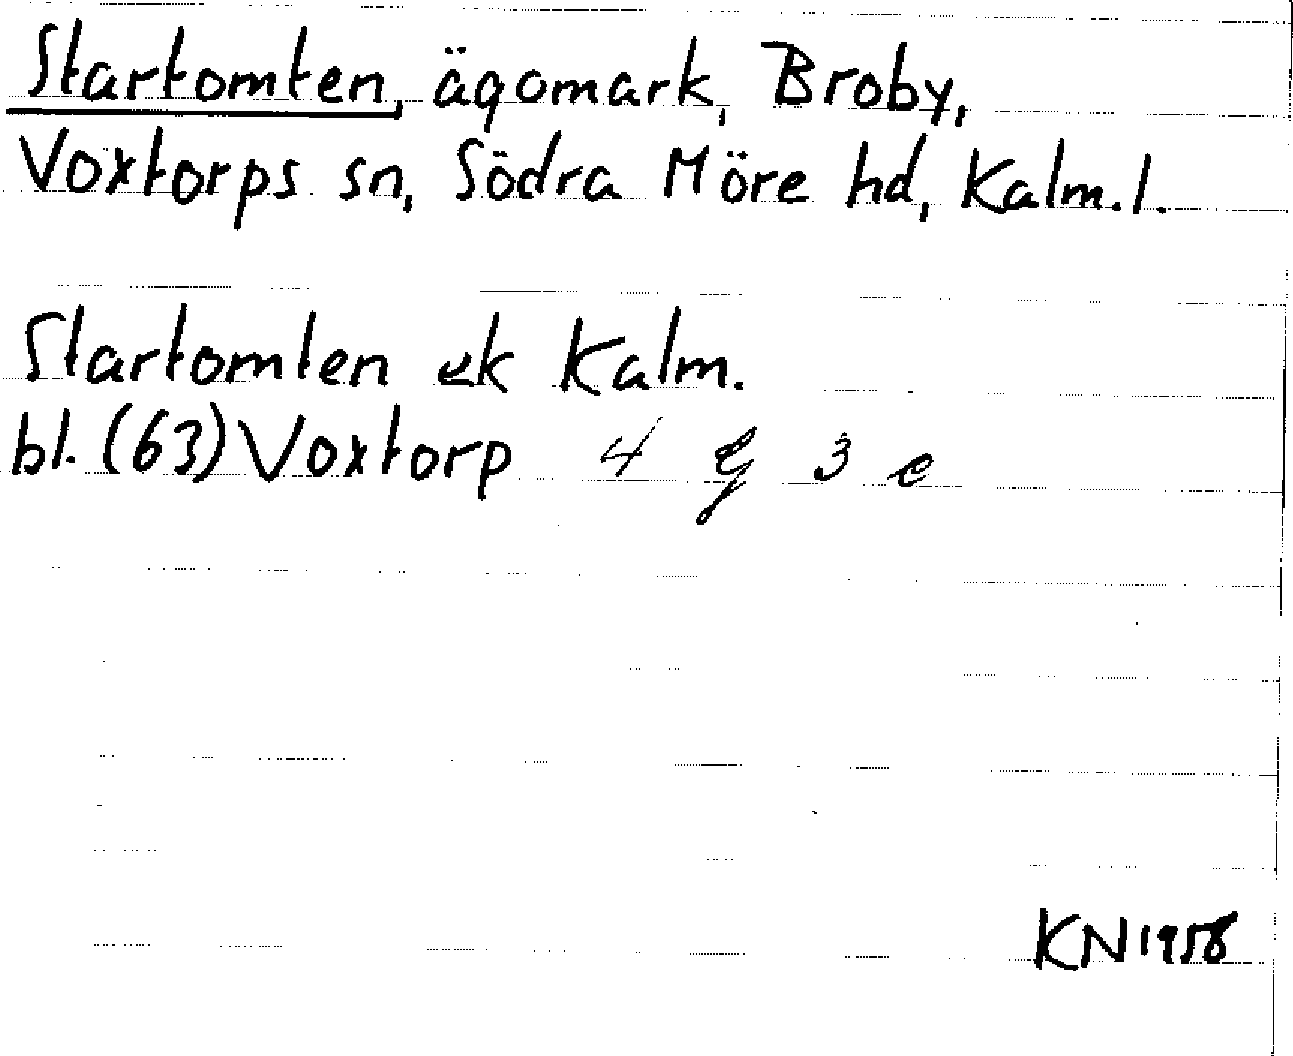 Startomten, ägomark, Broby,
Voxtorps sn, Södra Möre hd, Kalm. l.
Startomten ek Kalm.
bl. (63) Voxtorp 4 G 3 e
KN 1958